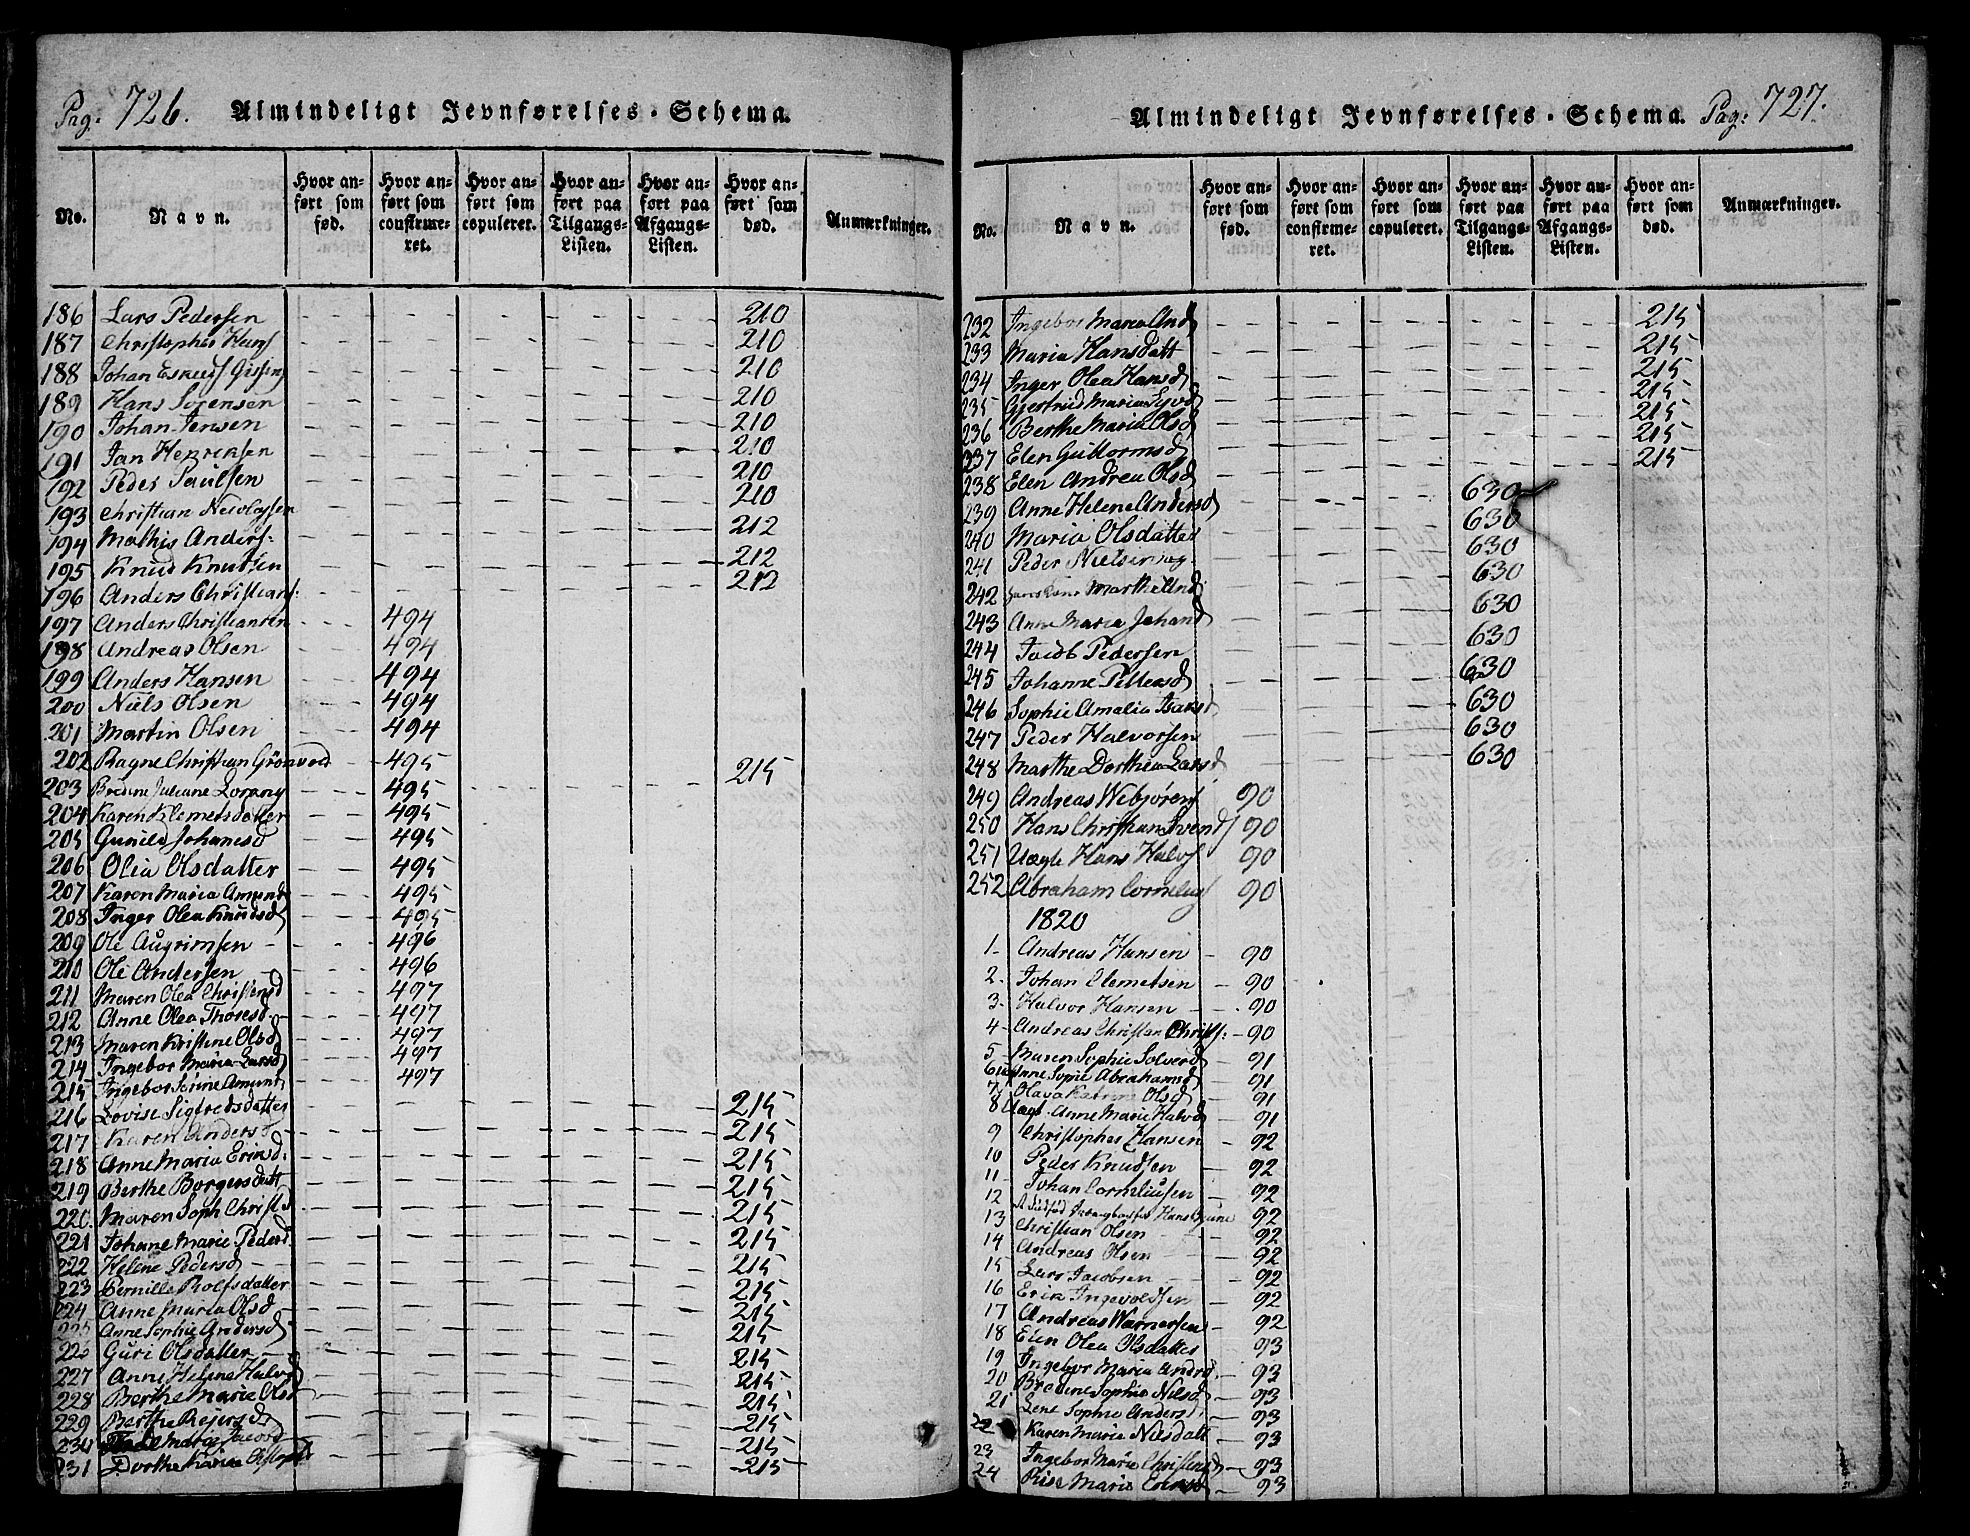 Pag. 726. Almindeligt Jevnførelses-Schema.
No. Navn. Hvor anført som fød. Hvor anført som confirmeret. Hvor anført som copuleret. Hvor anført paa Tilgangs-Listen. Hvor anført paa Afgangs-Listen. Hvor anført som død. Anmærkninger.
186 Lars Pedersen 210
187 Christopher Hans 210
188 Johan 210
189 Hans Sørensen 210
190 Johan Jensen 210
191 Jan Henriksen 210
192 Peder Paulsen 210
193 Christian 210
194 Mathis Anders: 212
195 Knud Knutsen 212
196 Anders Christians: 212
197 Anders Christiansen 494
198 Andreas Olsen 494
199 Anders Hansen 494
200 Niels Olsen 494
201 Martin Olsen 494
202 Ragne Christian Grönvold 495 215
203 Juliane 495
204 Karen Klemetsdatter 495
205 Gunild Johanesd 495
206 Olia Olsdatter 495
207 Karen Maria Amund 495
208 Inger Olea Knudsd 495
209 Ole 496
210 Ole Andersen 496
211 Maren Olea Christensd 497
212 Anne Olea Thoresd 497
213 Maren Kristine Olsd 497
214 Ingebor Maria Larsd 497
215 Ingebor Amund 497
216 Lovise Sigfredsdatter 215
217 Karen Anders 215
218 Anne Maria Ericsd: 215
219 Berthe Borgersdatt 215
220. Maren Soph Christ 215
221 Johane Marie Pedersd. 215
222 Helene Pedersd 215
223 Pernille Rolfsdatter 215
224 Anne Maria Olsd 215
225 Anne Sophie Andersd 215
226 Guri Olsdatter 215
227 Anne Helene Halvor 215
228 Berthe Marie Olsd 215
229 Berthe Reiersd 215
230 215
231 Dorthe 215
Almindeligt Jevnførelses-Schema. Pag: 727.
No. Navn. Hvor anført som fød. Hvor anført som confirmeret. Hvor anført som copuleret. Hvor anført paa Tilgangs-Listen. Hvor anført paa Afgangs-Listen. Hvor anført som død. Anmærkninger.
232 Ingebor Maria And 215
233 Maria Hansdatt 215
234 Inger Olea Hansd 215
235 Gjertrud Maria 215
236 Berthe Maria Olsd 215
237 Elen Guttormsd 215
238 Elen Andrea Olsd 215
239 Anne Helene Andersd 630
240 Maria Olsdatter 630
241 Peder 630
242 Marthe And 630
243 Anne Maria Johand 630
244 Jacob Pedersen 630
245 Johanne Pettersd 630
246 Sophie Amalia Isaksd 630
247 Peder Halvorsen 630
248 Marthe Dorthea Larsd 630
249 Andreas Webjørens 90
250 Hans Christian Svend 90
251 Uægte Hans Halv 90
252 Abraham Cornelius 90
1820
1- Andreas Hansen 90
2. Johan Clemetsen 90
3- Halvor Hansen 90
4- Andreas Christian Christ: 90
5- Maren Sophie Solverd 91
6 Anne Sopie Abrahamsd 91
7 Olava Katrine Olsd 91
8 Uægt. Anne Marie Halvd 91
9 Christopher Hansen 92
10 Peder Knudsen 92
11- Johan Corneliussen 92
12 92
13 Christian Olsen 92
14 Andreas Olsen 92
15 Lars Jacobsen 92
16 Erik Ingevoldsen 92
17 Andreas Warnersen 92
18 Elen Olea Olsdatter 93
19 Ingebor Maria Andrd 93
20 Sophie Nilsd 93
21 Lene Sophie Andersd 93
22 Karen Maria Nilsdatt 93
23 Ingebor Marie Christensd 93
24 Marie 93